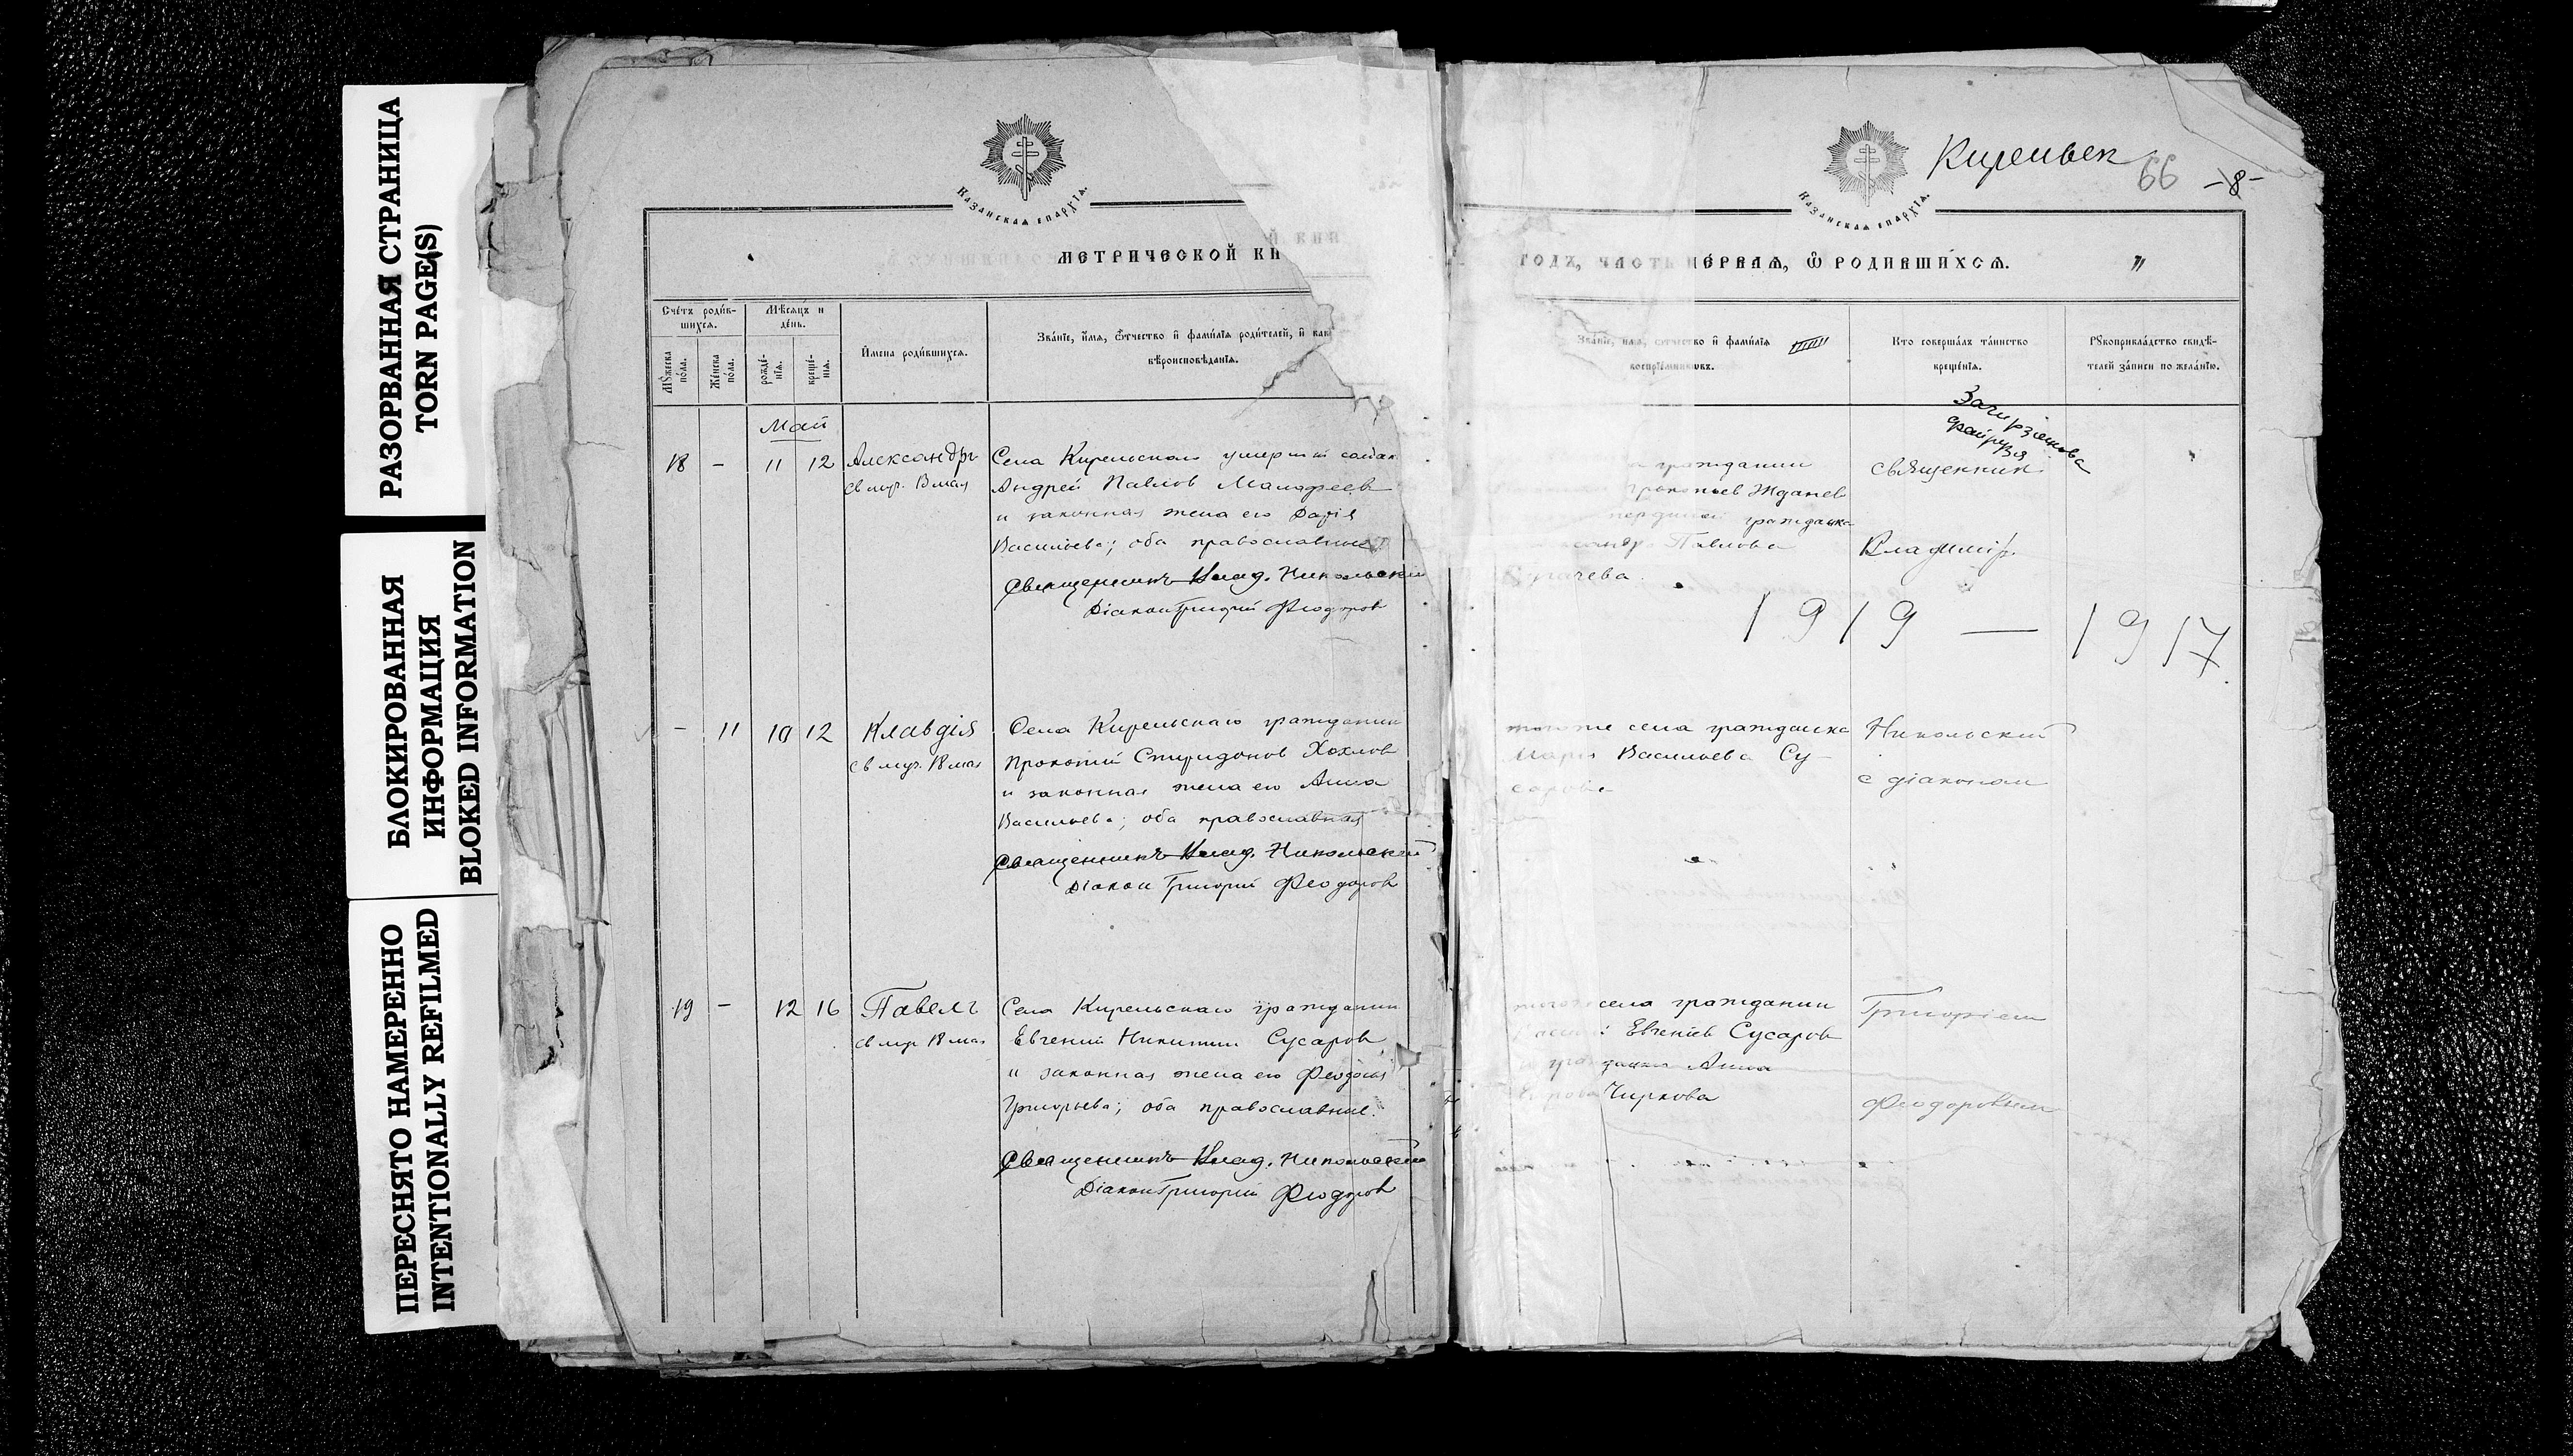 РАЗОРВАННАЯ СТРАНИЦА
TORN PAGE(S)
БЛОКИРОВАННАЯ
ИНФОРМАЦИЯ
BLOKED INFORMATION
ПЕРЕСНЯТО НАМЕРЕННО
INTENTIONALLY REFILMED
Казанская епархїа.
МЕТРИЧЕСКОЙ КН
Сче́тъ роди́в-
шихся.
Мѣсяцъ и
де́нь.
Мꙋжеска
по́ла.
Же́нска
по́ла.
рожде́-
нїя.
креще́-
нїя.
И҆мена роди́вшихся.
Зва́нїе, и҆мя, ѻ҆тчество и҆ фами́лїя роди́телей, и҆ как
вѣроисповѣ́данїя.
Май
18 - 11 12 Александръ
св муч. 13 мая
Села Кирельскаго умерший солдат
Андрей Павлов Малафеев
и законная жена его Дарія
Васильева; оба православные
Священникъ Влад. Никольский
Діакон Григорий Феодоров
- 11 10 12 Клавдія
св муч. 18 мая
Села Кирельскаго гражданин
Прокопий Спиридонов Хохлов
и законная жена его Анна
Васильева; оба православная
Священникъ Влад. Никольский
Діакон Григорий Феодоров
19 - 12 16 Павелъ
св муч 18 мая
Села Кирельскаго гражданин
Евгений Никитин Сусаров
и законная жена его Феодосия
Григорьева; оба православные.
Священникъ Влад. Никольский
Діакон Григорий Феодоров
Казанская епархїа.
Кирельск
66 -8-
ГОДЪ, ЧАСТЬ ПЕ́РВАЯ, Ѽ РОДИВШИ́ХСЯ.
Зва́нїе, имя, отчество и҆ фами́лїя
воспрїе́мниковъ.
Кто соверша́лъ та́инство
креще́нїя.
Рꙋкоприкла́дство свидѣ́-
телей за́писи по жела́нїю.
гражданин
Прокопьев Жданов
гражданка
Павлова
священник
Владимір
1919 — 1917
того же села гражданка
Марія Васильева Су-
сарова
Никольский
с діаконом
села гражданин
Евгеніев Сусаров
гражданка Анна
Чиркова
Григоріем
Феодоровым